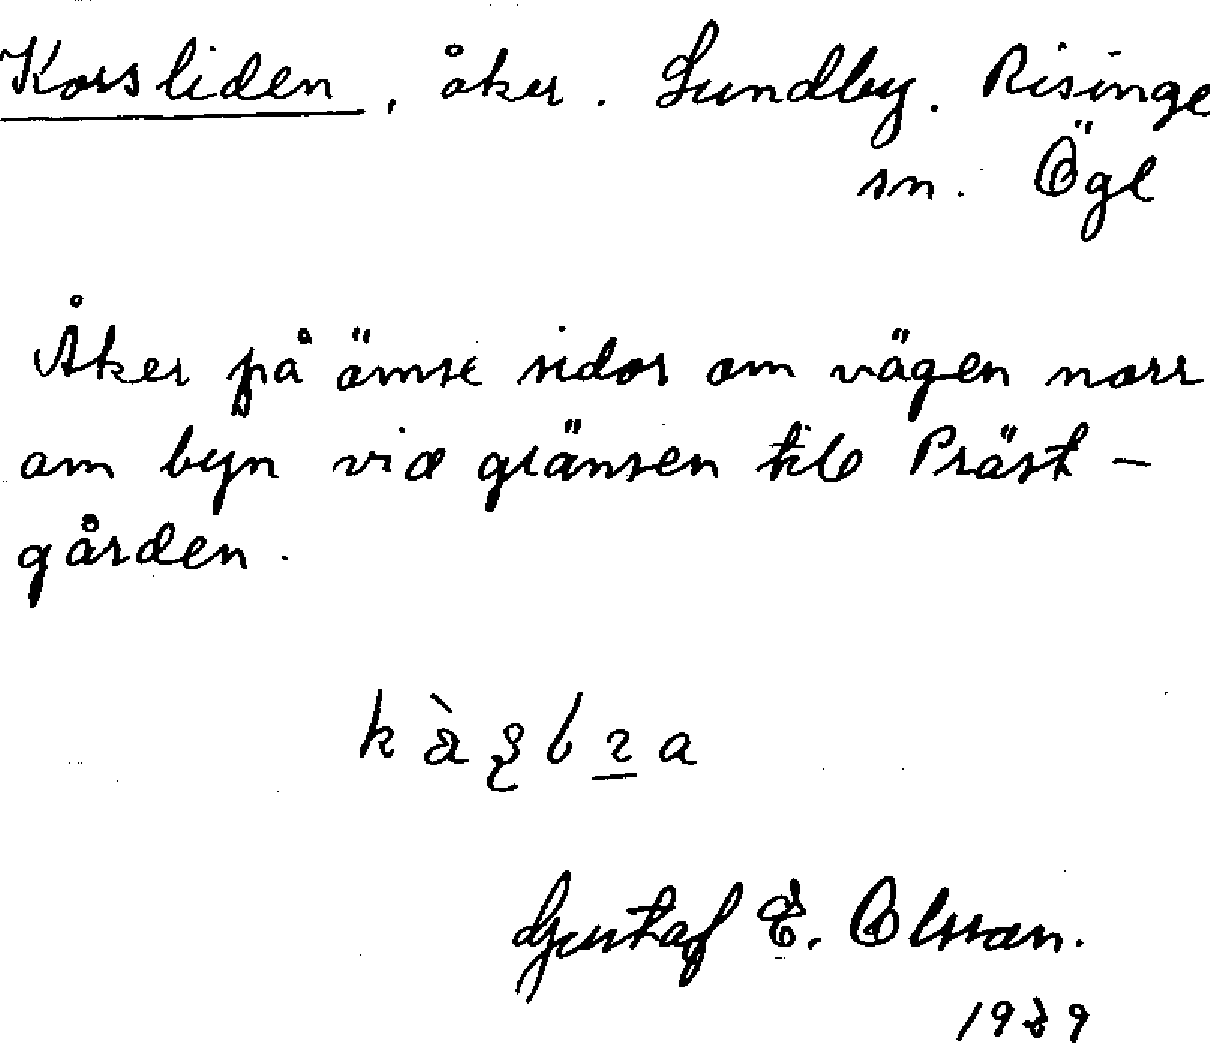 Korsliden, åker. Lundby. Risinge
sn. Ögl
Åker på ömse sidor om vägen norr
om byn vid gränsen till Präst-
gården.
Gustaf E. Olsson.